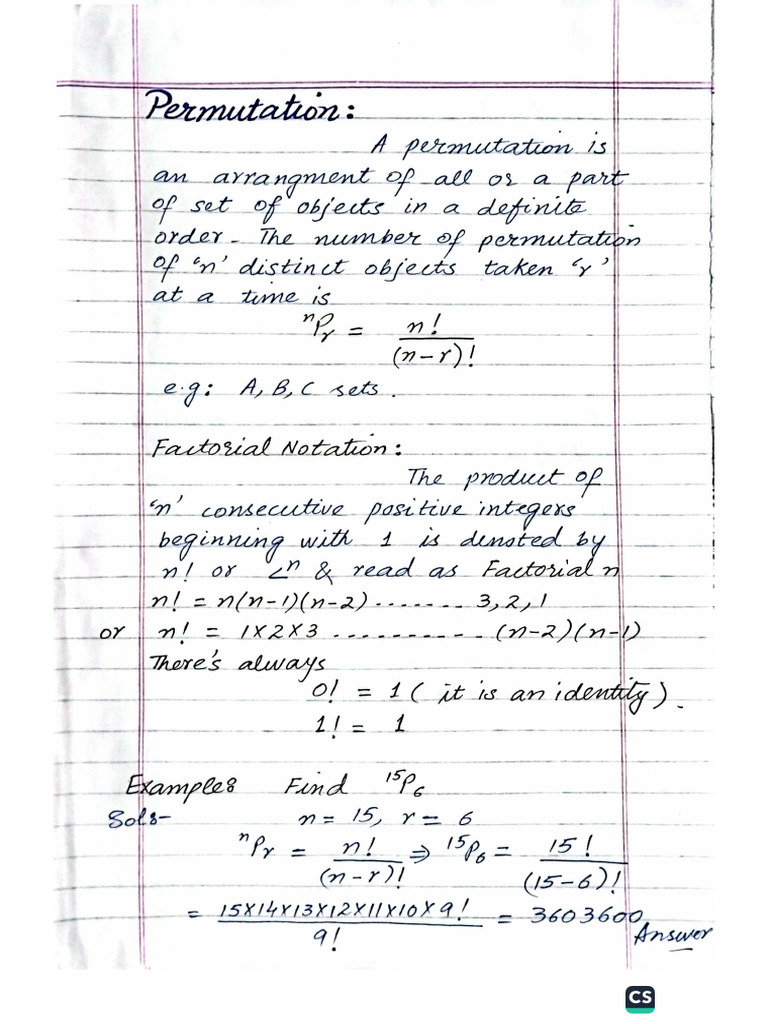 Permutation:
A permutation is
an arrangment of all or a part
of set of objects in a definite
order. The number of permutation
of 'n' distinct objects taken 'r'
at a time is
ⁿPᵣ = n!/(n-r)!
e.g: A, B, C sets.
Factorial Notation:
The product of
'n' consecutive positive integers
beginning with 1 is denoted by
n! or ∠n & read as Factorial n
n! = n(n-1)(n-2) ....... 3, 2, 1
or n! = 1×2×3 .......... (n-2)(n-1)
There's always
0! = 1 ( it is an identity ).
1! = 1
Example: Find ¹⁵P₆
Sol:- n = 15, r = 6
ⁿPᵣ = n!/(n-r)! ⇒ ¹⁵P₆ = 15!/(15-6)!
= 15×14×13×12×11×10×9!/9! = 3603600
Answer
CS